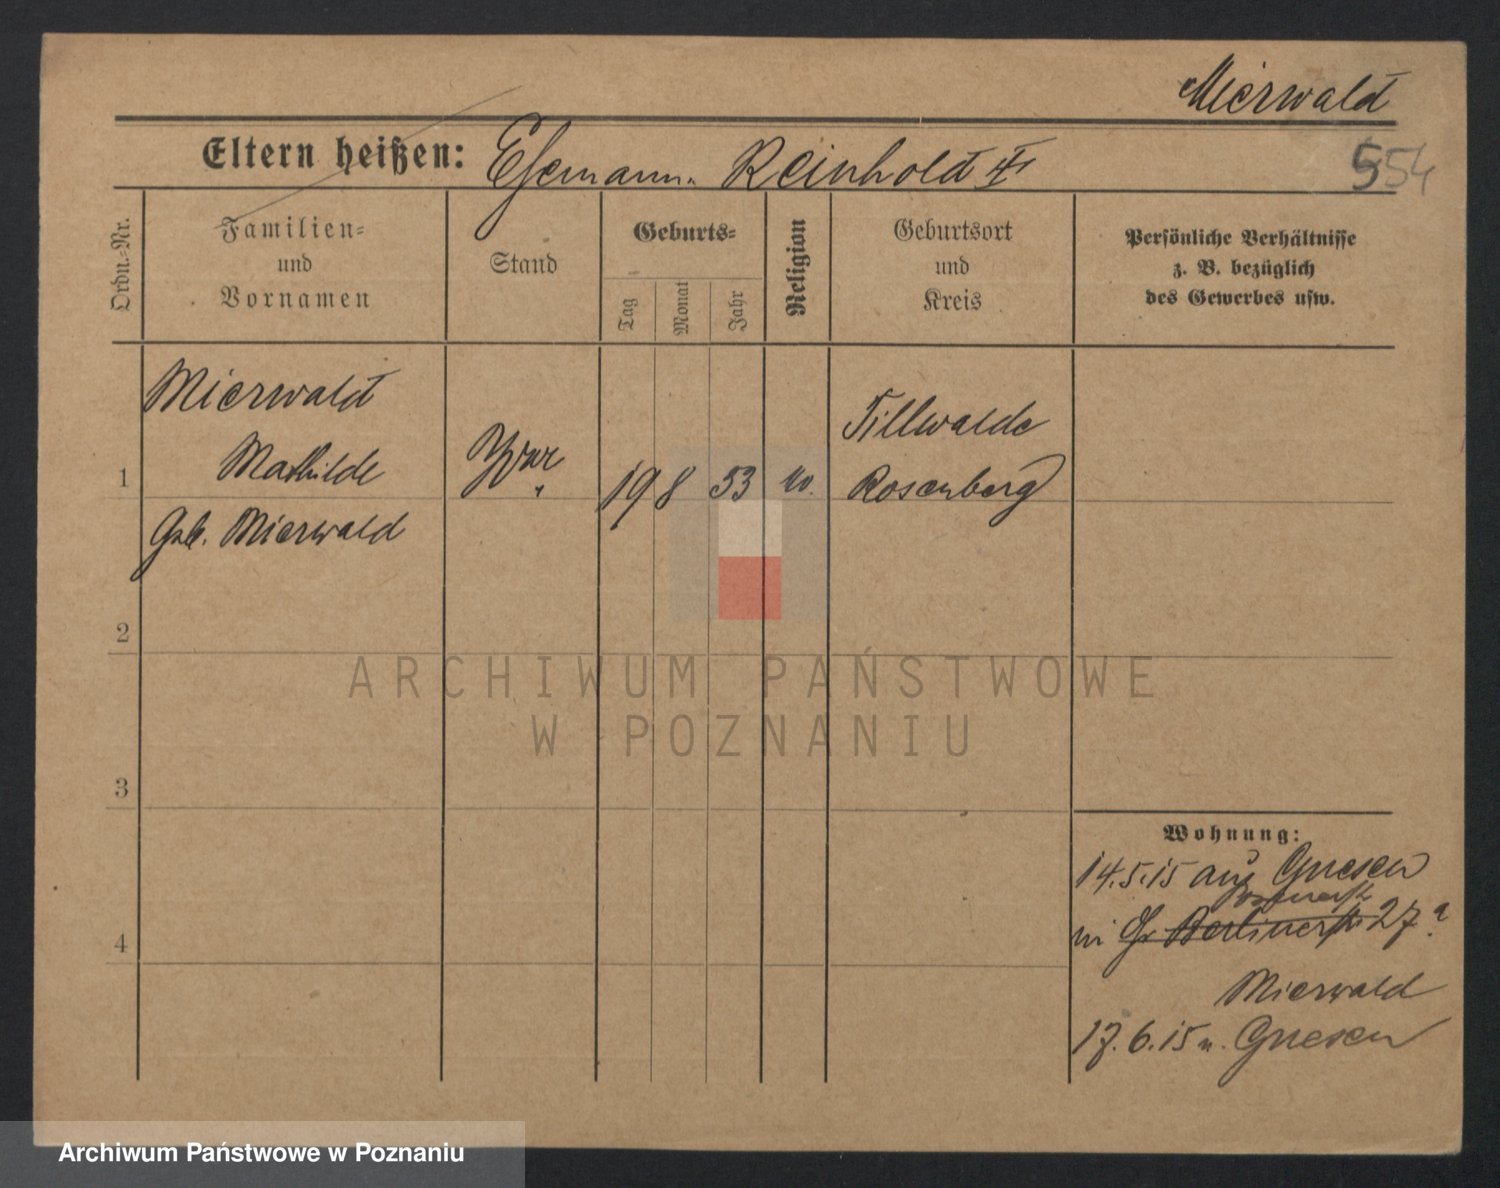 Mierwald
Eltern heißen: Ehemann. Reinhold †
554
Ordn.-Nr.
Familien-
und
Vornamen
Stand
Geburts-
Tag
Monat
Jahr
Religion
Geburtsort
und
Kreis
Persönliche Verhältnisse
z. B. bezüglich
des Gewerbes usw.
1
Mierwald
Mathilde
Geb. Mierwald
Wwe
19 8 53
Tillwalde
Rosenberg
2
3
4
Wohnung:
14.5.15 aus Gnesen
Gr Berlinerstr 27
Mierwald
17.6.15 n. Gnesen
ARCHIWUM PAŃSTWOWE
W POZNANIU
Archiwum Państwowe w Poznaniu